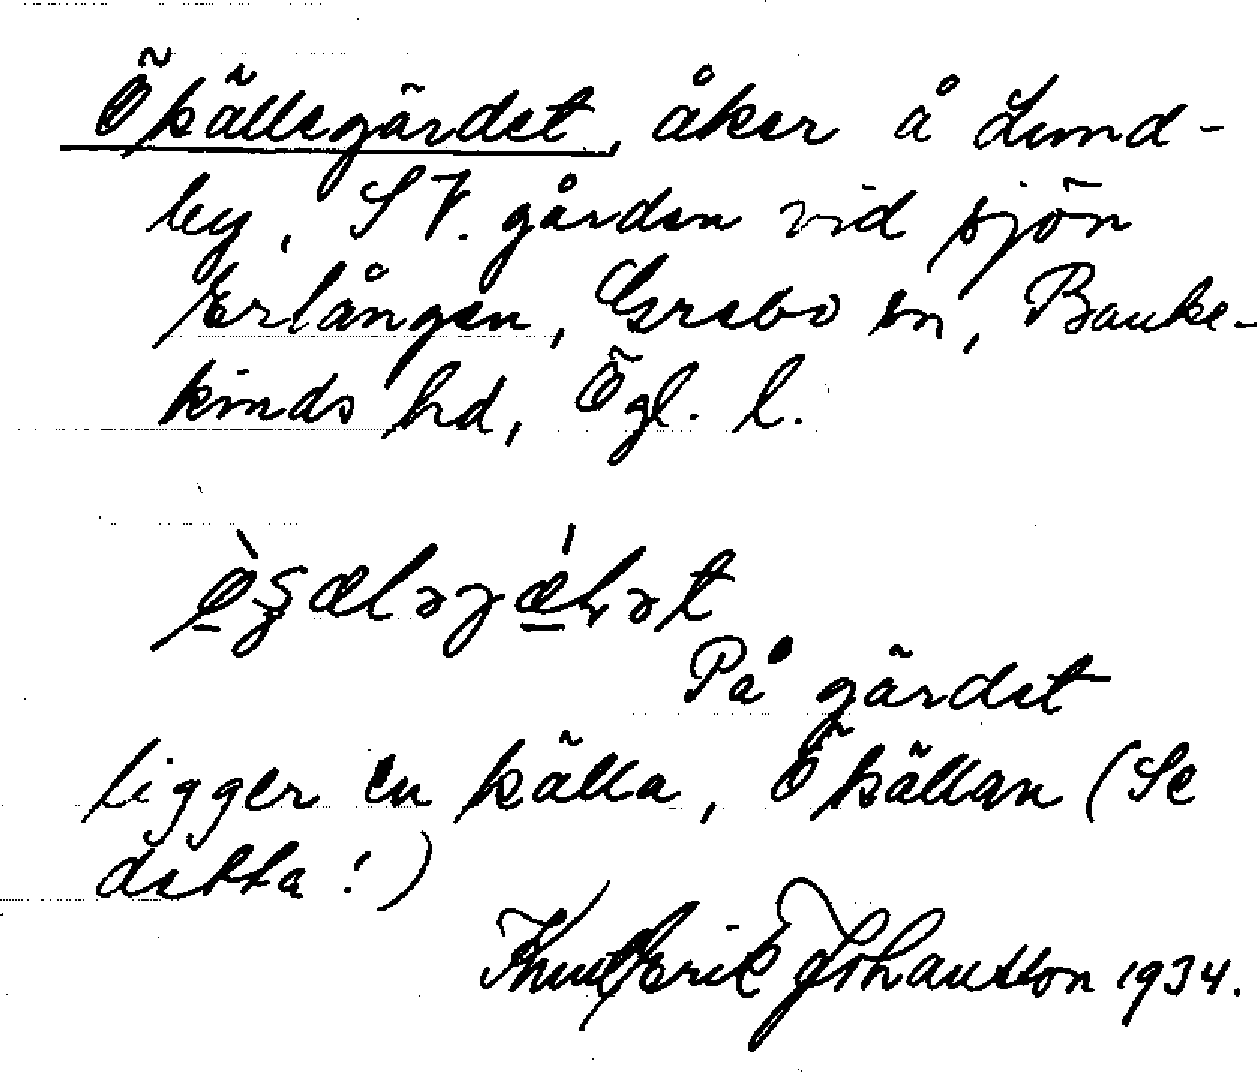 Ökällsgärdet, åker å Lund-
by, SV. gården vid sjön
Erlången, Grebo sn, Banke-
kinds hd, Ögl. l.
På gärdet
ligger en källa, Ökällan (Se
detta!)
Knut Erik Johansson 1934.